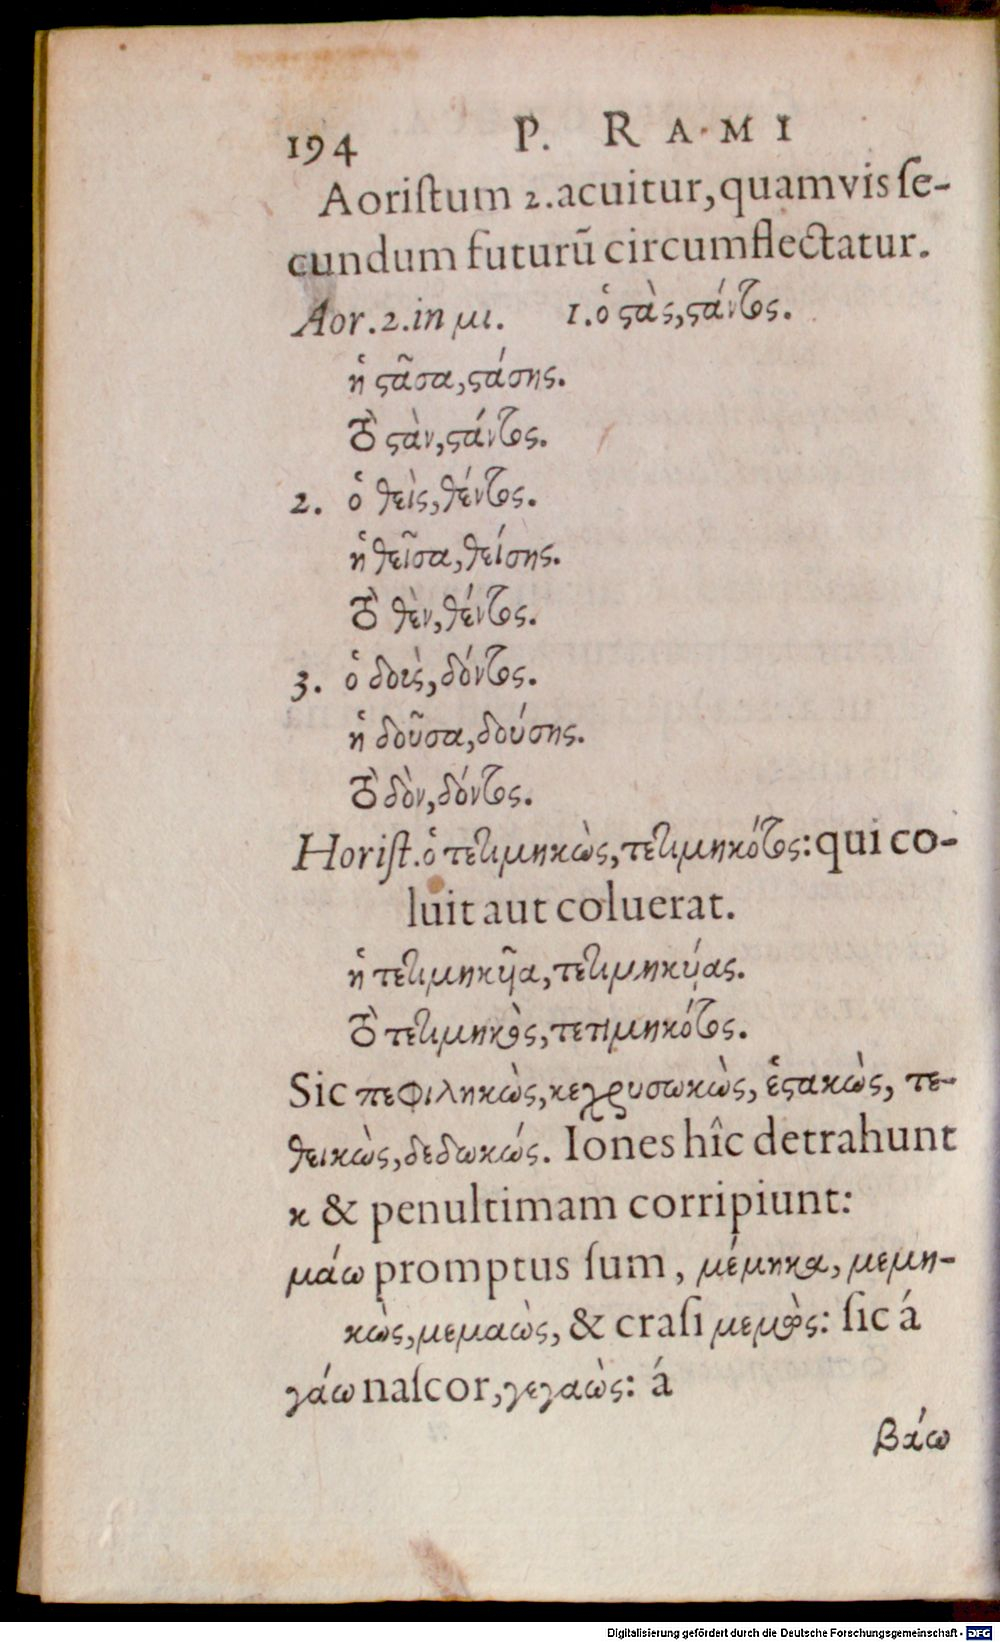 194 P. RAMI
Aoriſtum 2. acuitur, quamvis ſe-
cundum futurū circumflectatur.
Aor. 2. in μι. 1. ὁ ϛὰς, ϛάντος.
ἡ ϛᾶσα, ϛάσης.
τὸ ϛὰν, ϛάντος.
2. ὁ θεὶς, θέντος.
ἡ θεῖσα, θείσης.
τὸ θὲν, θέντος.
3. ὁ δοὺς, δόντος.
ἡ δοῦσα, δούσης.
τὸ δὸν, δόντος.
Horiſt. ὁ τετιμηκὼς, τετιμηκότος: qui co-
luit aut coluerat.
ἡ τετιμηκῦια, τετιμηκύιας.
τὸ τετιμηκὸς, τετιμηκότος.
Sic πεφιληκὼς, κεχρυσωκὼς, ἑϛακὼς, τε-
θεικὼς, δεδωκώς. Iones hîc detrahunt
κ & penultimam corripiunt:
μάω promptus ſum, μέμηκα, μεμη-
κὼς, μεμαὼς, & craſi μεμὼς: ſic á
γάω naſcor, γεγαὼς: á
βάω
Digitalisierung gefördert durch die Deutsche Forschungsgemeinschaft - DFG